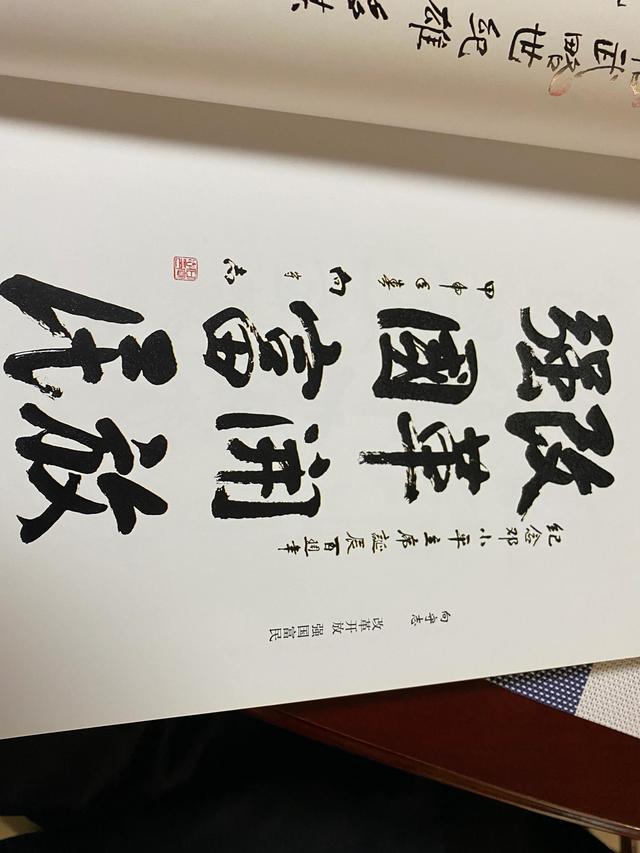 武畧世紀雄
紀念邓小平主席誕辰百週年
改革開放
強國富民
甲申
向守志
向守志
改革开放 强国富民